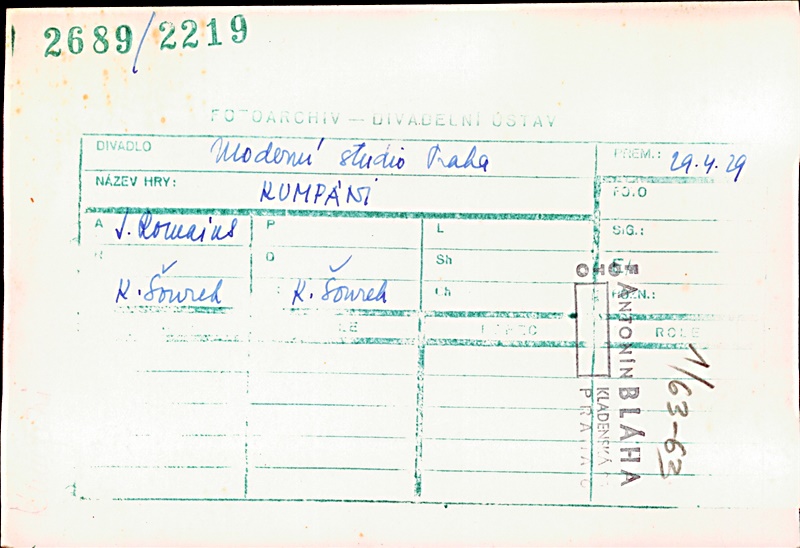 2689/2219
FOTOARCHIV — DIVADELNÍ ÚSTAV
DIVADLO Moderní studio Praha PREM.: 29.4.29
NÁZEV HRY: KUMPÁNI
A J. Romains P L SIG.:
Sh
K. Šourek K. Šourek
ROLE
FOTO
ANTONÍN BLÁHA
KLADENSKÁ
PRAHA
1/63-63